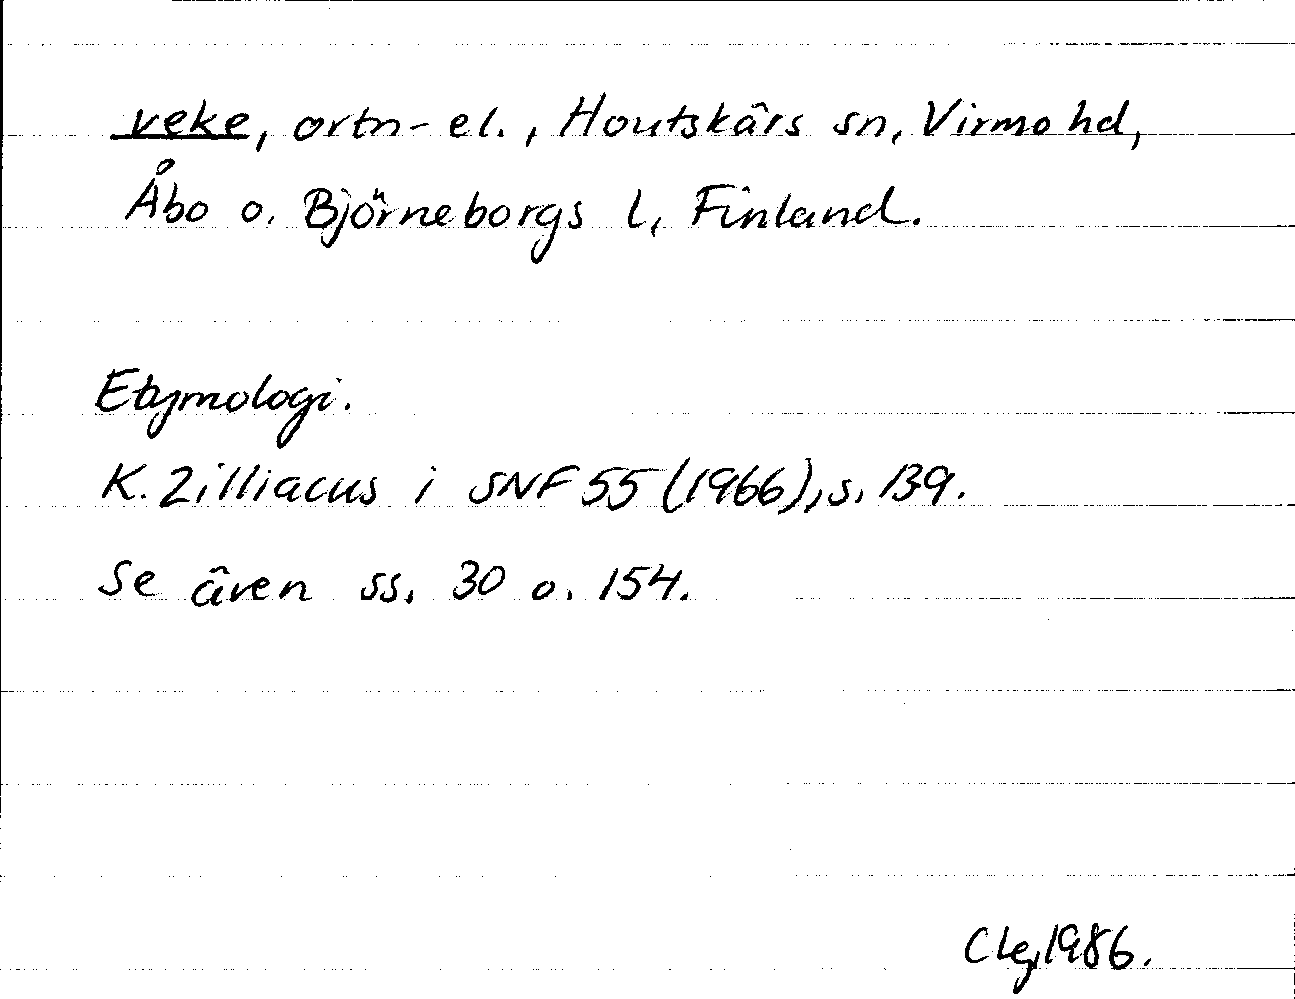 veke, ortn-el., Houtskärs sn, Virmo hd,
Åbo o. Björneborgs l, Finland.
Etymologi.
K. Zilliacus i SNF 55 (1966), s. 139.
Se även ss. 30 o. 154.
1986.